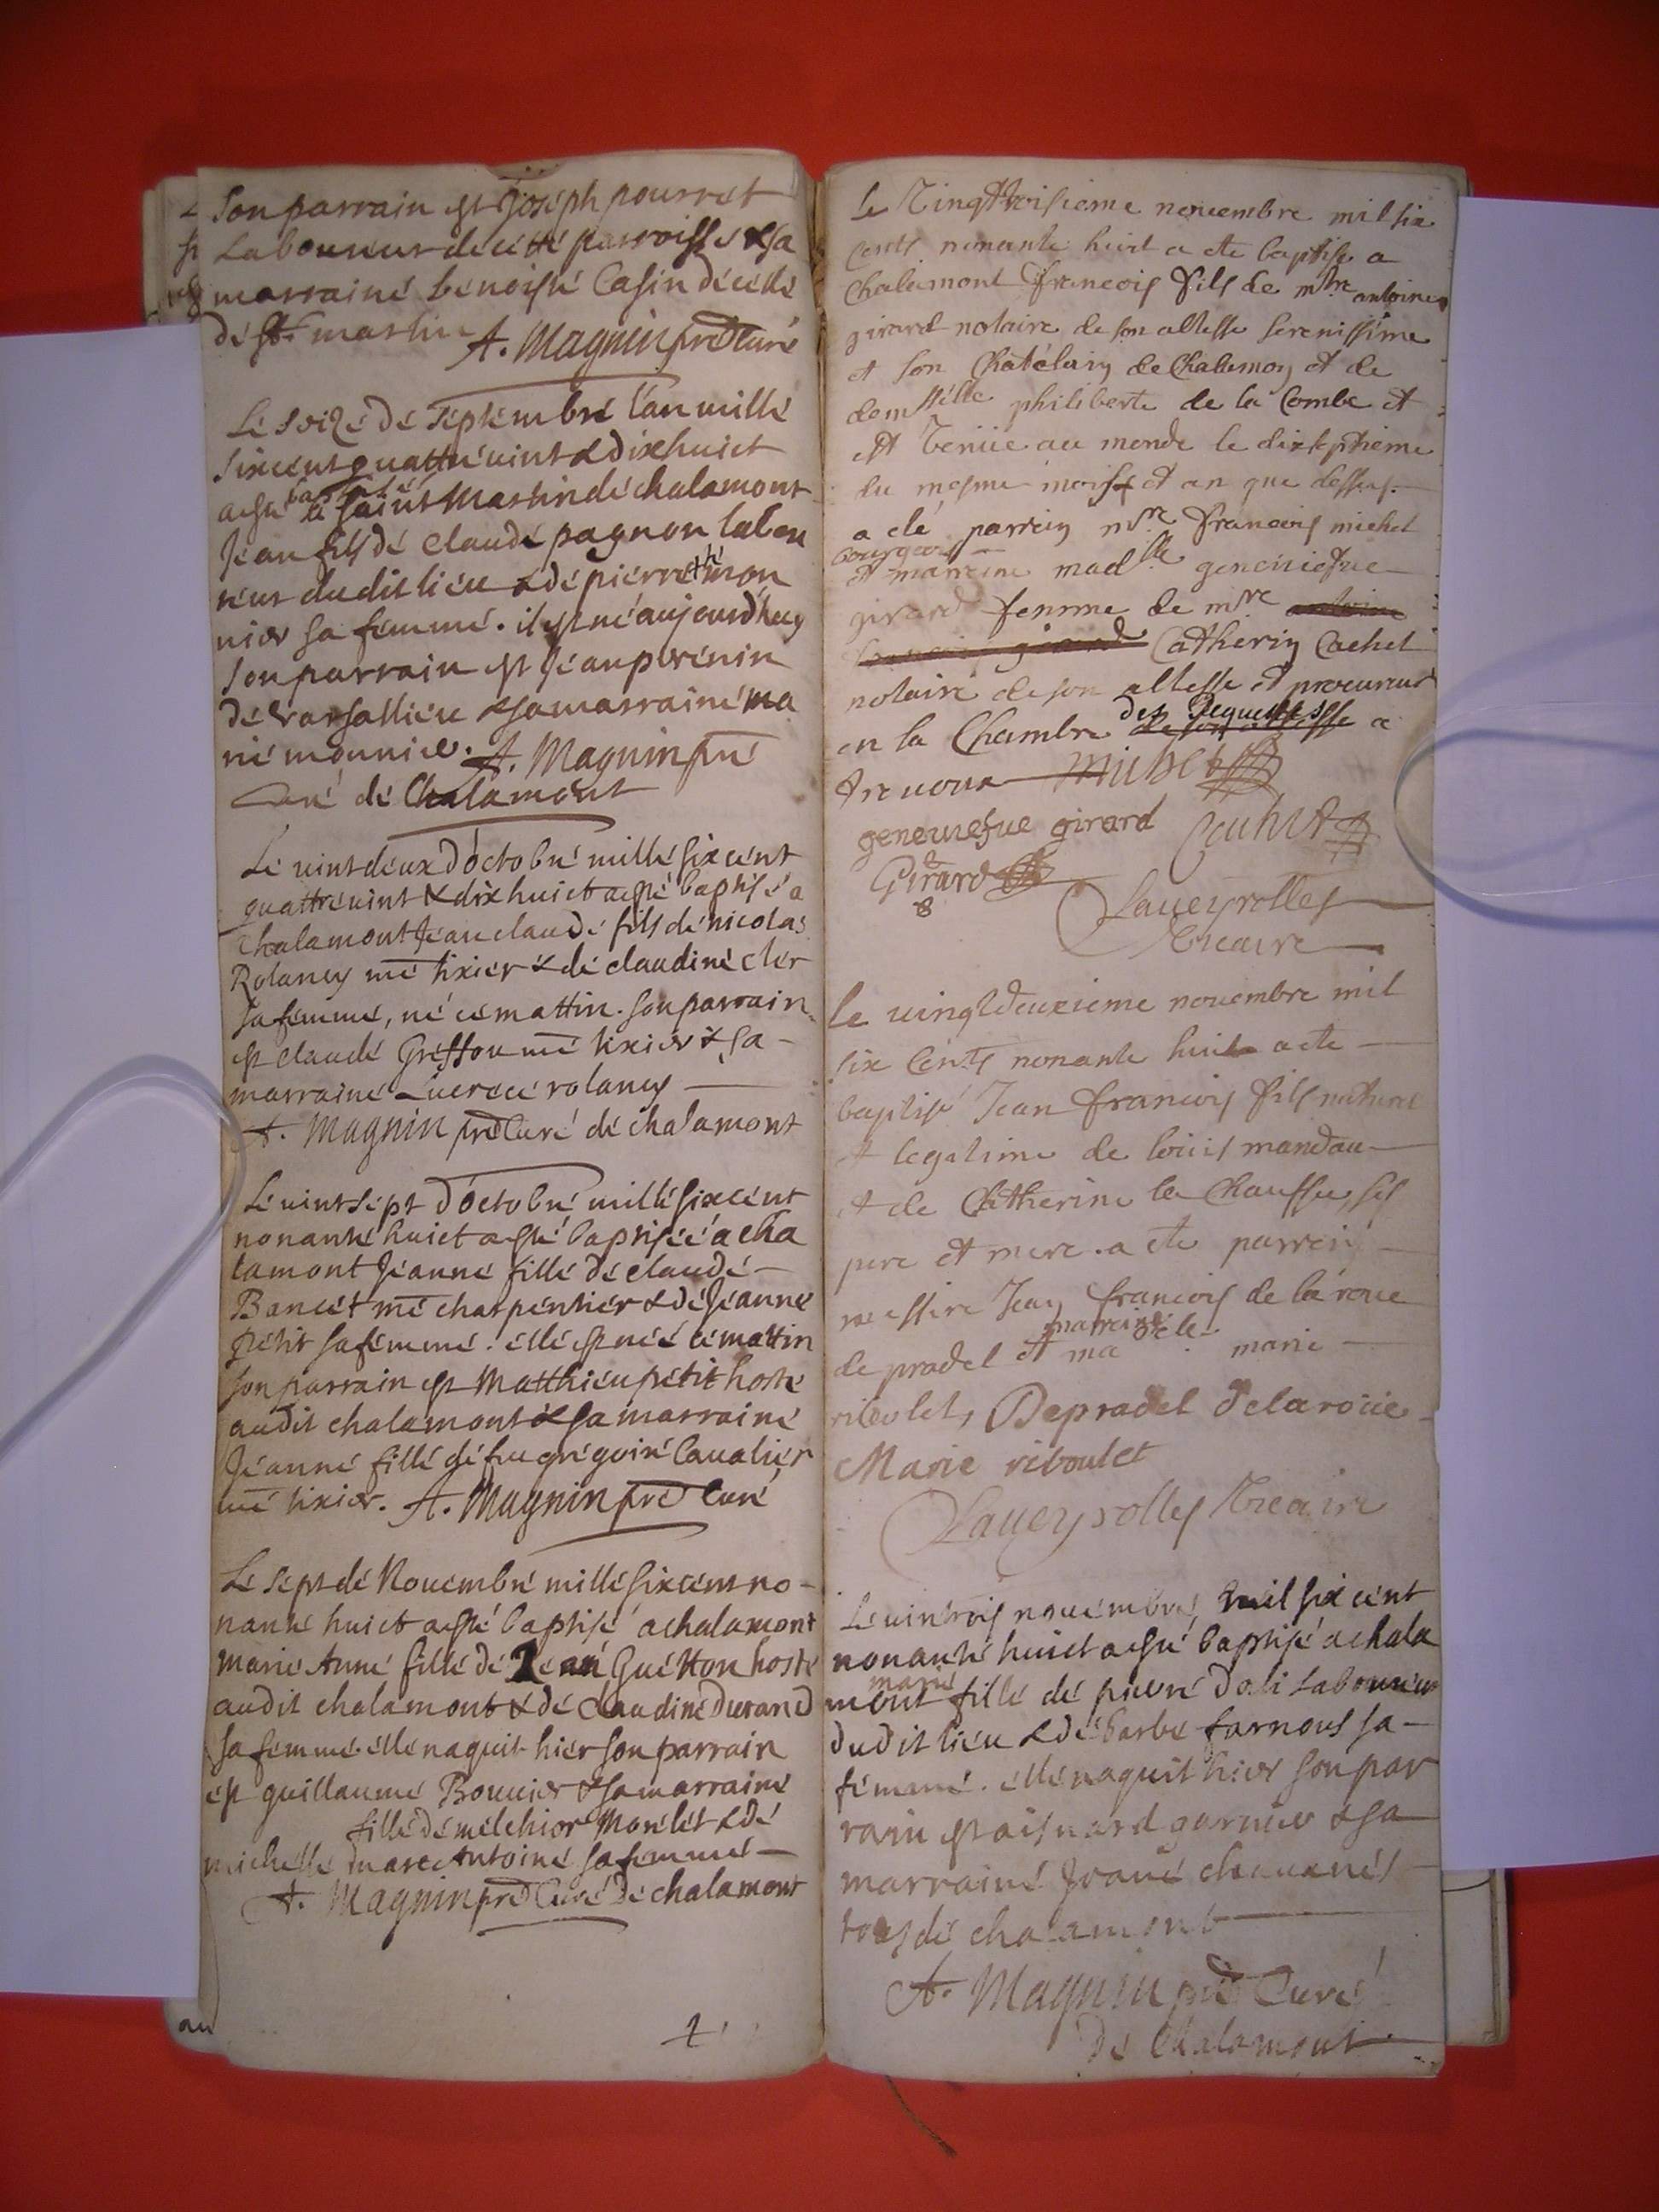 Son parrain est Joseph pourret
Laboureur de cette parroisse & sa
marraine benoiste Casin de celle
de St. martin A. Magnin pre Curé
Le seize de septembre l'an mille
sixcent quattrevint & dixhuict
a esté baptisé a saint Martin de chalamont
Jean fils de Claude pagnon labou
reur dudit lieu & de pierrethé mon
nier sa femme. il est né aujourdhuy
son parrain est Jean perenin
de & sa marraine ma
rie monnier. A. Magnin pre
Curé de Chalamont
Le vintdeux d'octobre mille sixcent
quattrevint & dixhuict a esté baptisé a
Chalamont Jean claude fils de nicolas
Rolancy me tixier & de claudine cler
sa femme, né ce mattin. son parrain
est claude Greffou me tixier & sa
marraine Lucrece rolancy
A. Magnin pre Curé de chalamont
Le vintsept d'octobre mille sixcent
nonante huict a esté baptisée a cha
lamont Jeanne fille de claude
Bancet me charpentier & de Jeanne
petit sa femme. elle est née ce mattin
son parrain est Matthieu petit hoste
audit chalamont & sa marraine
Jeanne fille de feu gregoire Cavalier
me tixier. A. Magnin pre Curé
Le sept de Novembre mille sixcent no-
nante huict a esté baptisé a chalamont
Marie Anne fille de Jean Guetton hoste
audit chalamont & de Claudine Durand
sa femme elle naquit hier son parrain
est guillaume Bouvier & sa marraine
fille de melchior Morelet & de
michelle marc Antoine sa femme
A. Magnin pre Curé de chalamont
1
le vingttroisieme novembre mil six
cents nonante huit a ete baptise a
Chalamont francois fils de mtre antoine
girard notaire de son altesse serenissime
et son Chatelain de Chalamon et de
demselle philiberte de la Combe et
est venüe au monde le dixseptieme
du mesme mois et an que dessus
a eté parrein msre francois michel
bourgeois
et marreine madlle geneviefve
girard femme de msre antoine
girard Catherin Cachet
notaire de son altesse et procureur
en la Chambre des Requestes a
trevoux Michel
geneviefve girard Cachet
Girard
Laveyrolles
Vicaire
le vingtdeuxieme novembre mil
six cents nonante huit a ete
baptisé Jean francois fils naturel
et legitime de loüis mandau
et de Catherine la Chausse, ses
pere et mere. a ete parrein
messire Jean francois de la roue
de pradel et marreine madelle marie
riboulet, Depradel Delaroüe
Marie riboulet
Laveyrolles Vicaire
Le vintrois novembre mil six cent
nonante huict a esté baptisé a chala
mont marie fille de pierre Dali Laboureur
dudit lieu & de Barbe farnous sa
femme. elle naquit hier son par
rain est aisnard garnier & sa
marraine
tous de chalamont
A. Magnin pre Curé
de Chalamont